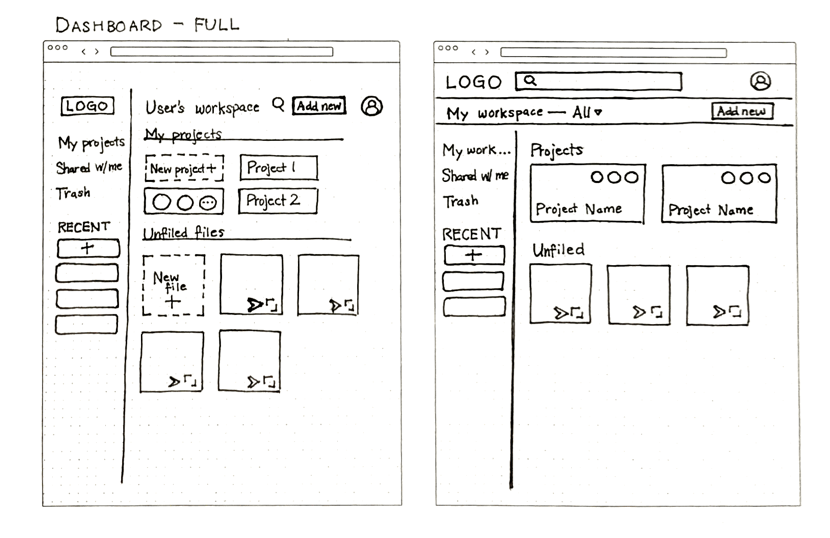 DASHBOARD - FULL
LOGO
My projects
Shared w/me
Trash
RECENT
+
User's workspace
Add new
My projects
New project+
Project 1
Project 2
Unfiled files
New
file
+
LOGO
My workspace — All
Add new
My work...
Shared w/ me
Trash
RECENT
+
Projects
Project Name
Project Name
Unfiled